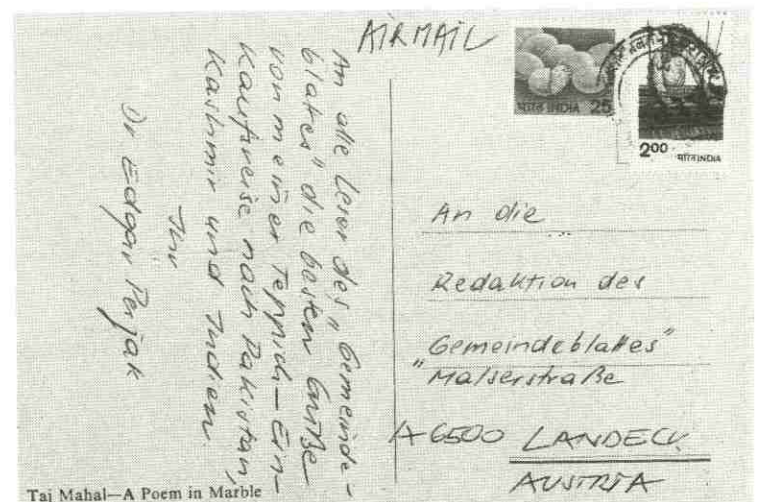 AIRMAIL
An alle Leser des "Gemeinde-
blattes" die besten Grüße
von meiner Teppich-Ein-
kaufsreise nach Pakistan,
Kashmir und Indien
Ihr
Dr. Edgar Perjak
भारत INDIA 25
2.00 भारत INDIA
An die
Redaktion des
"Gemeindeblattes"
Malserstraße
A 6500 LANDECK
AUSTRIA
Taj Mahal—A Poem in Marble